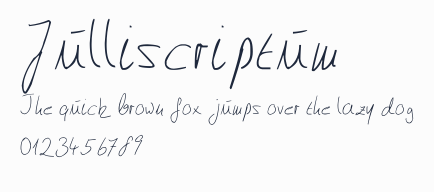 Jūlliscriptūm
The qūick brown fox jūmps over the lazy dog
0123456789